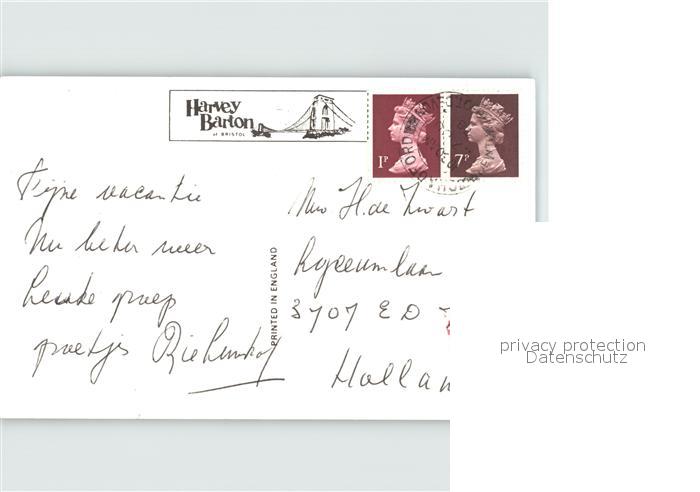 Harvey
Barton
of BRISTOL
1P
7P
Fijne vacantie
Nu beter weer
Leuke groep
groetjes
PRINTED IN ENGLAND
H. de Zwart
Lyceumlaan
3707 ED
Hollan
privacy protection
Datenschutz